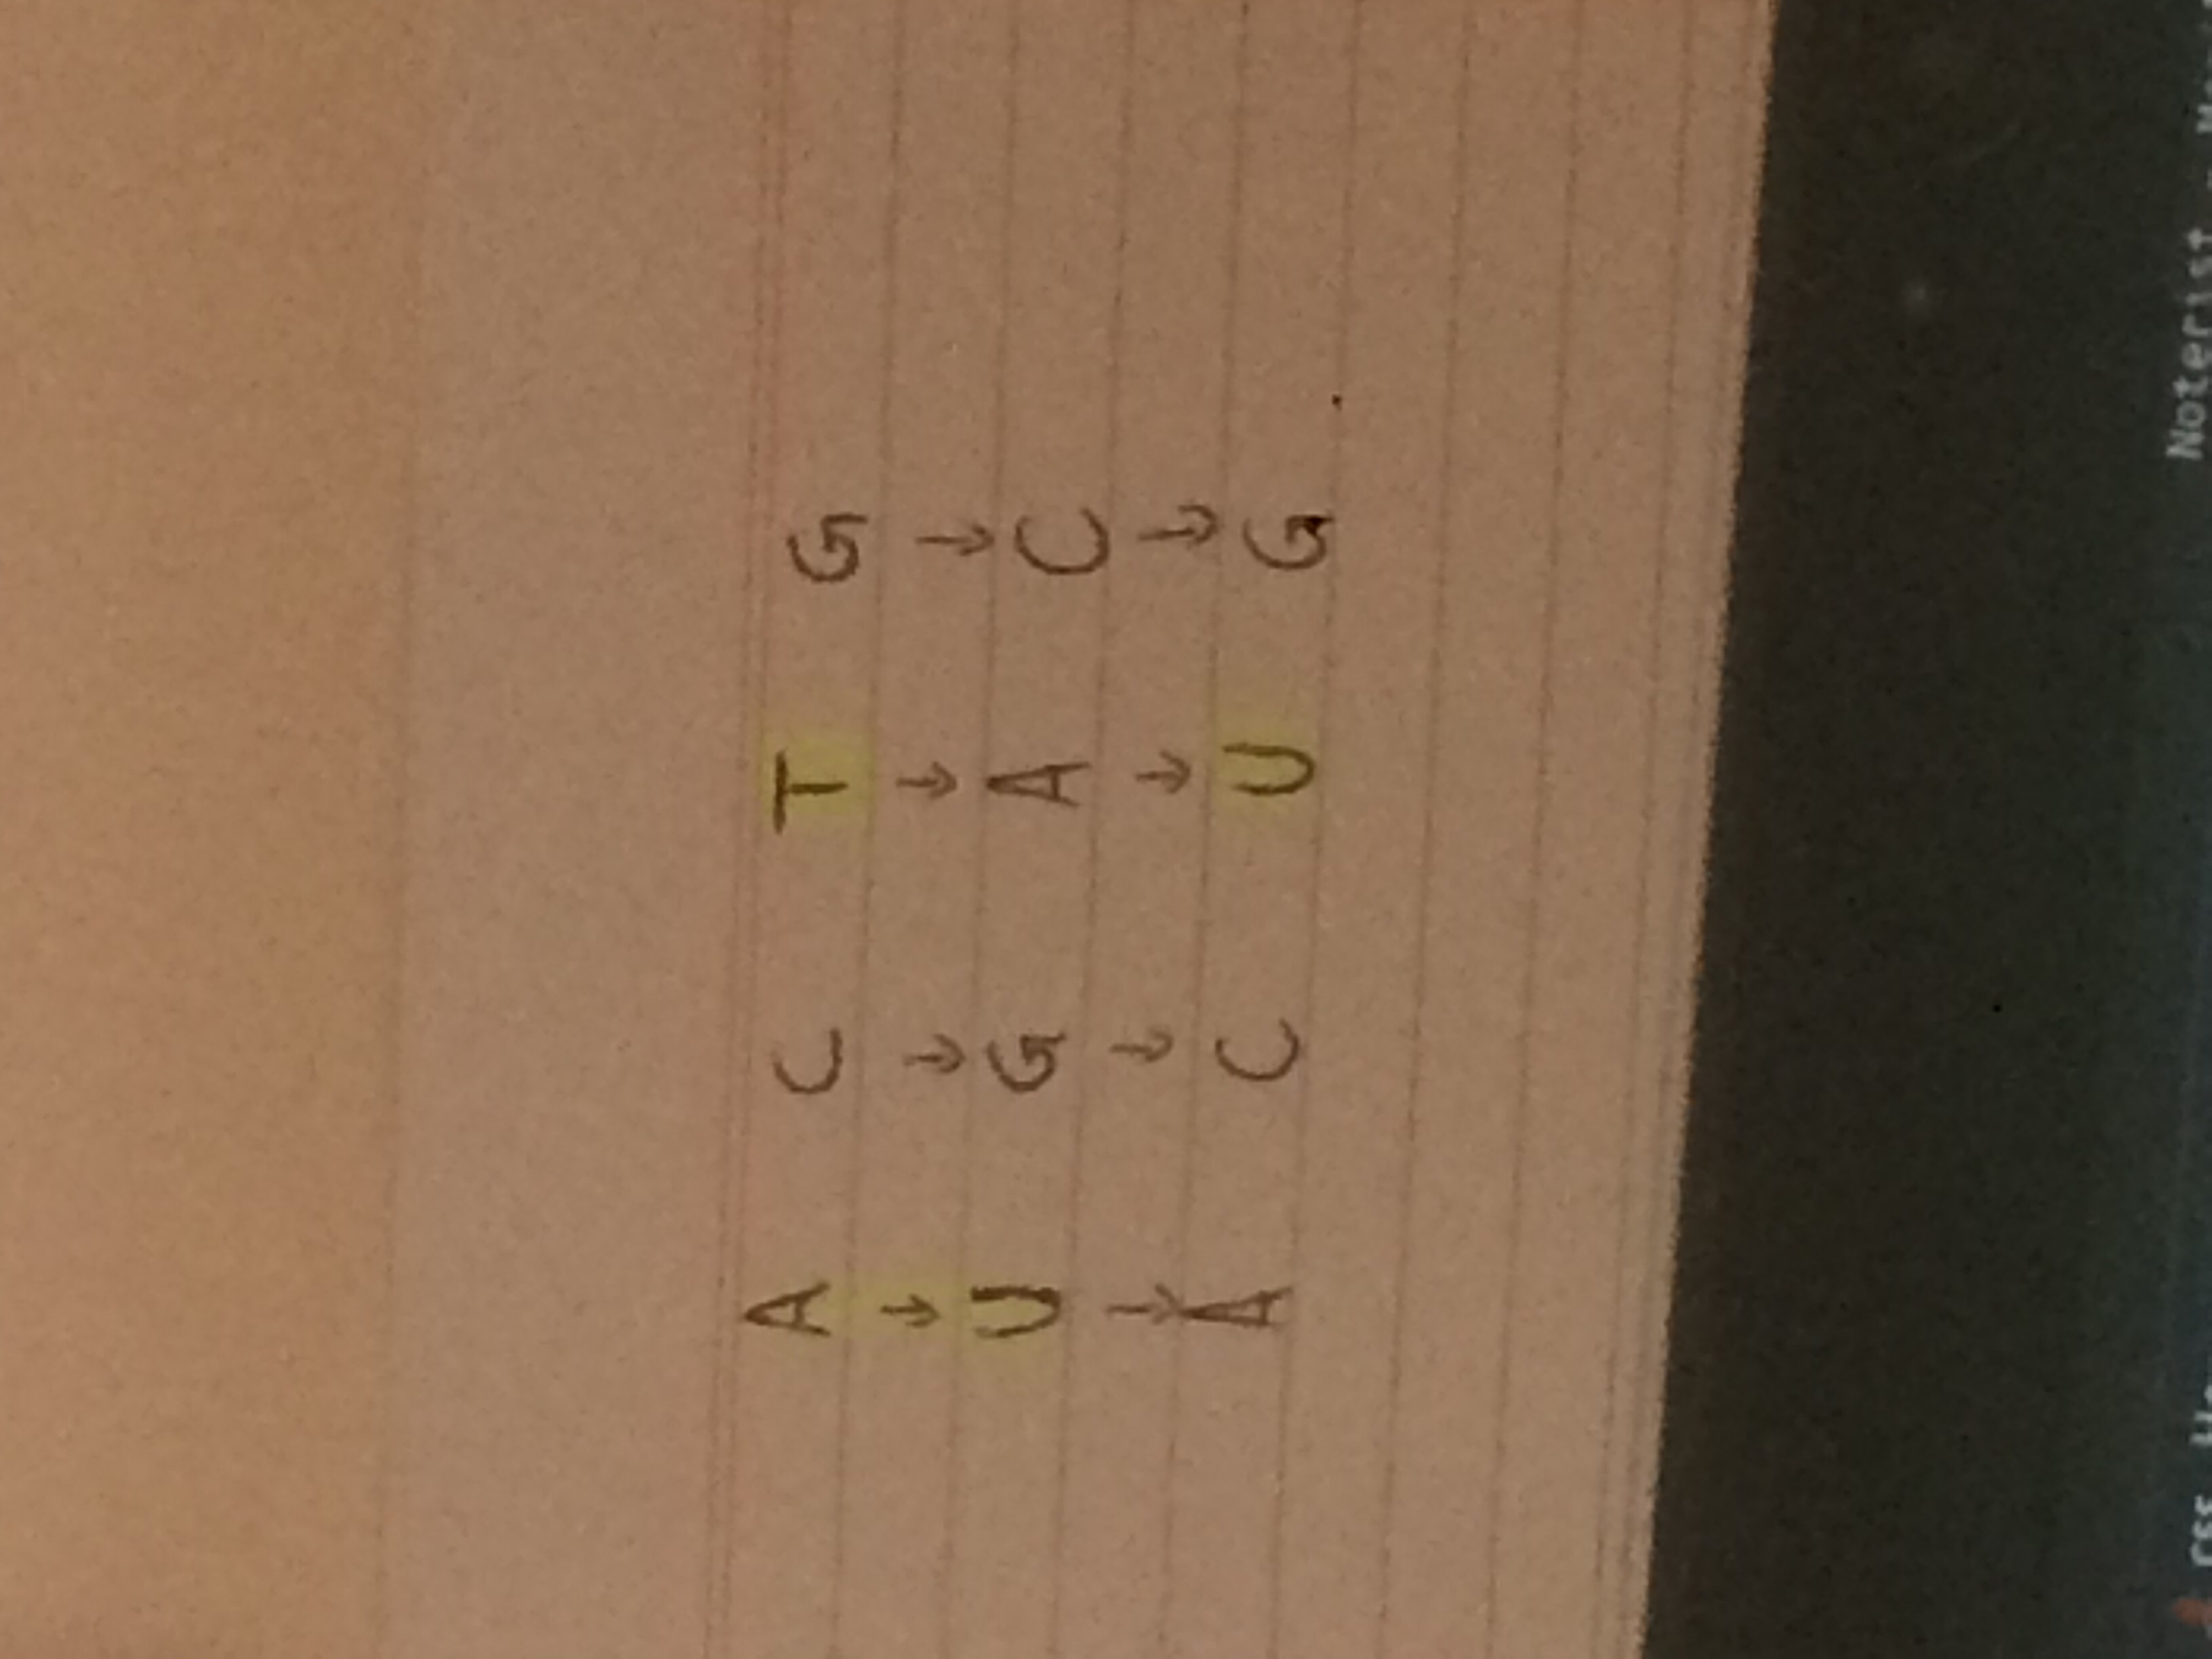 A C T G
↓ ↓ ↓ ↓
U G A C
↓ ↓ ↓ ↓
A C U G
css
Noterist -